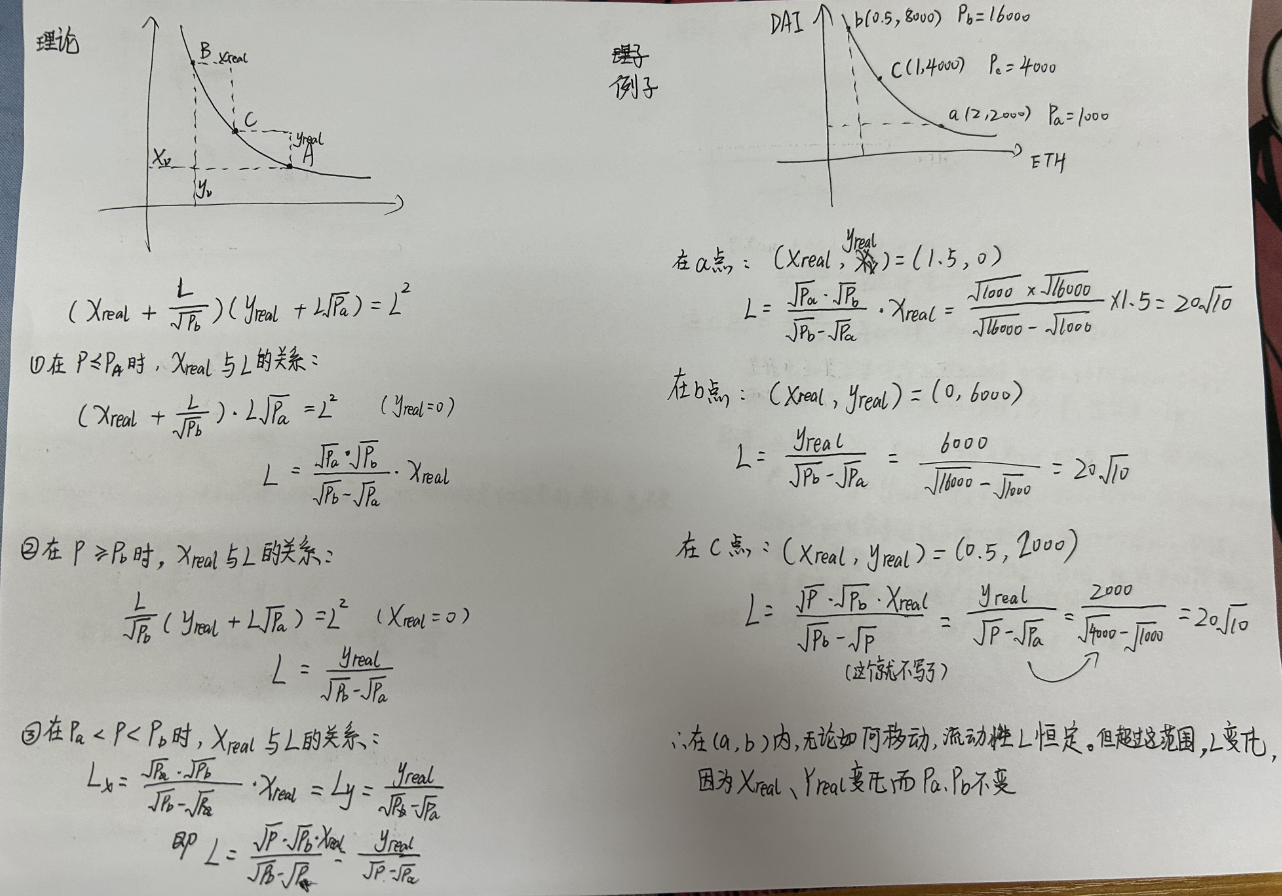 理论
B
xreal
C
yreal
A
Xv
yv
(Xreal + L/√Pb)(yreal + L√Pa) = L²
①在 P≤PA时，Xreal 与L的关系：
(Xreal + L/√Pb)·L√Pa = L² (yreal=0)
L = √Pa·√Pb/(√Pb-√Pa) · Xreal
②在 P≥Pb时，Xreal 与L的关系：
L/√Pb (yreal + L√Pa) = L² (Xreal=0)
L = yreal/(√Pb-√Pa)
③在Pa<P<Pb时，Xreal 与L的关系：
Lx = √Pa·√Pb/(√Pb-√Pa) · Xreal = Ly = yreal/(√Pb-√Pa)
即 L = √P·√Pb·Xreal/(√Pb-√P) = yreal/(√P-√Pa)
例子
DAI
b(0.5, 8000) Pb=16000
C(1,4000) Pc=4000
a(2,2000) Pa=1000
ETH
在a点：(Xreal, yreal)=(1.5, 0)
L = √Pa·√Pb/(√Pb-√Pa) · Xreal = √1000×√16000/(√16000-√1000) ×1.5 = 20√10
在b点：(Xreal, yreal)=(0, 6000)
L = yreal/(√Pb-√Pa) = 6000/(√16000-√1000) = 20√10
在C点：(Xreal, yreal)=(0.5, 2000)
L = √P·√Pb·Xreal/(√Pb-√P) = yreal/(√P-√Pa) = 2000/(√4000-√1000) = 20√10
(这个就不写了)
∴在(a,b)内，无论如何移动，流动性L恒定。但超过这范围，L变化，
因为Xreal、Yreal变化而Pa、Pb不变